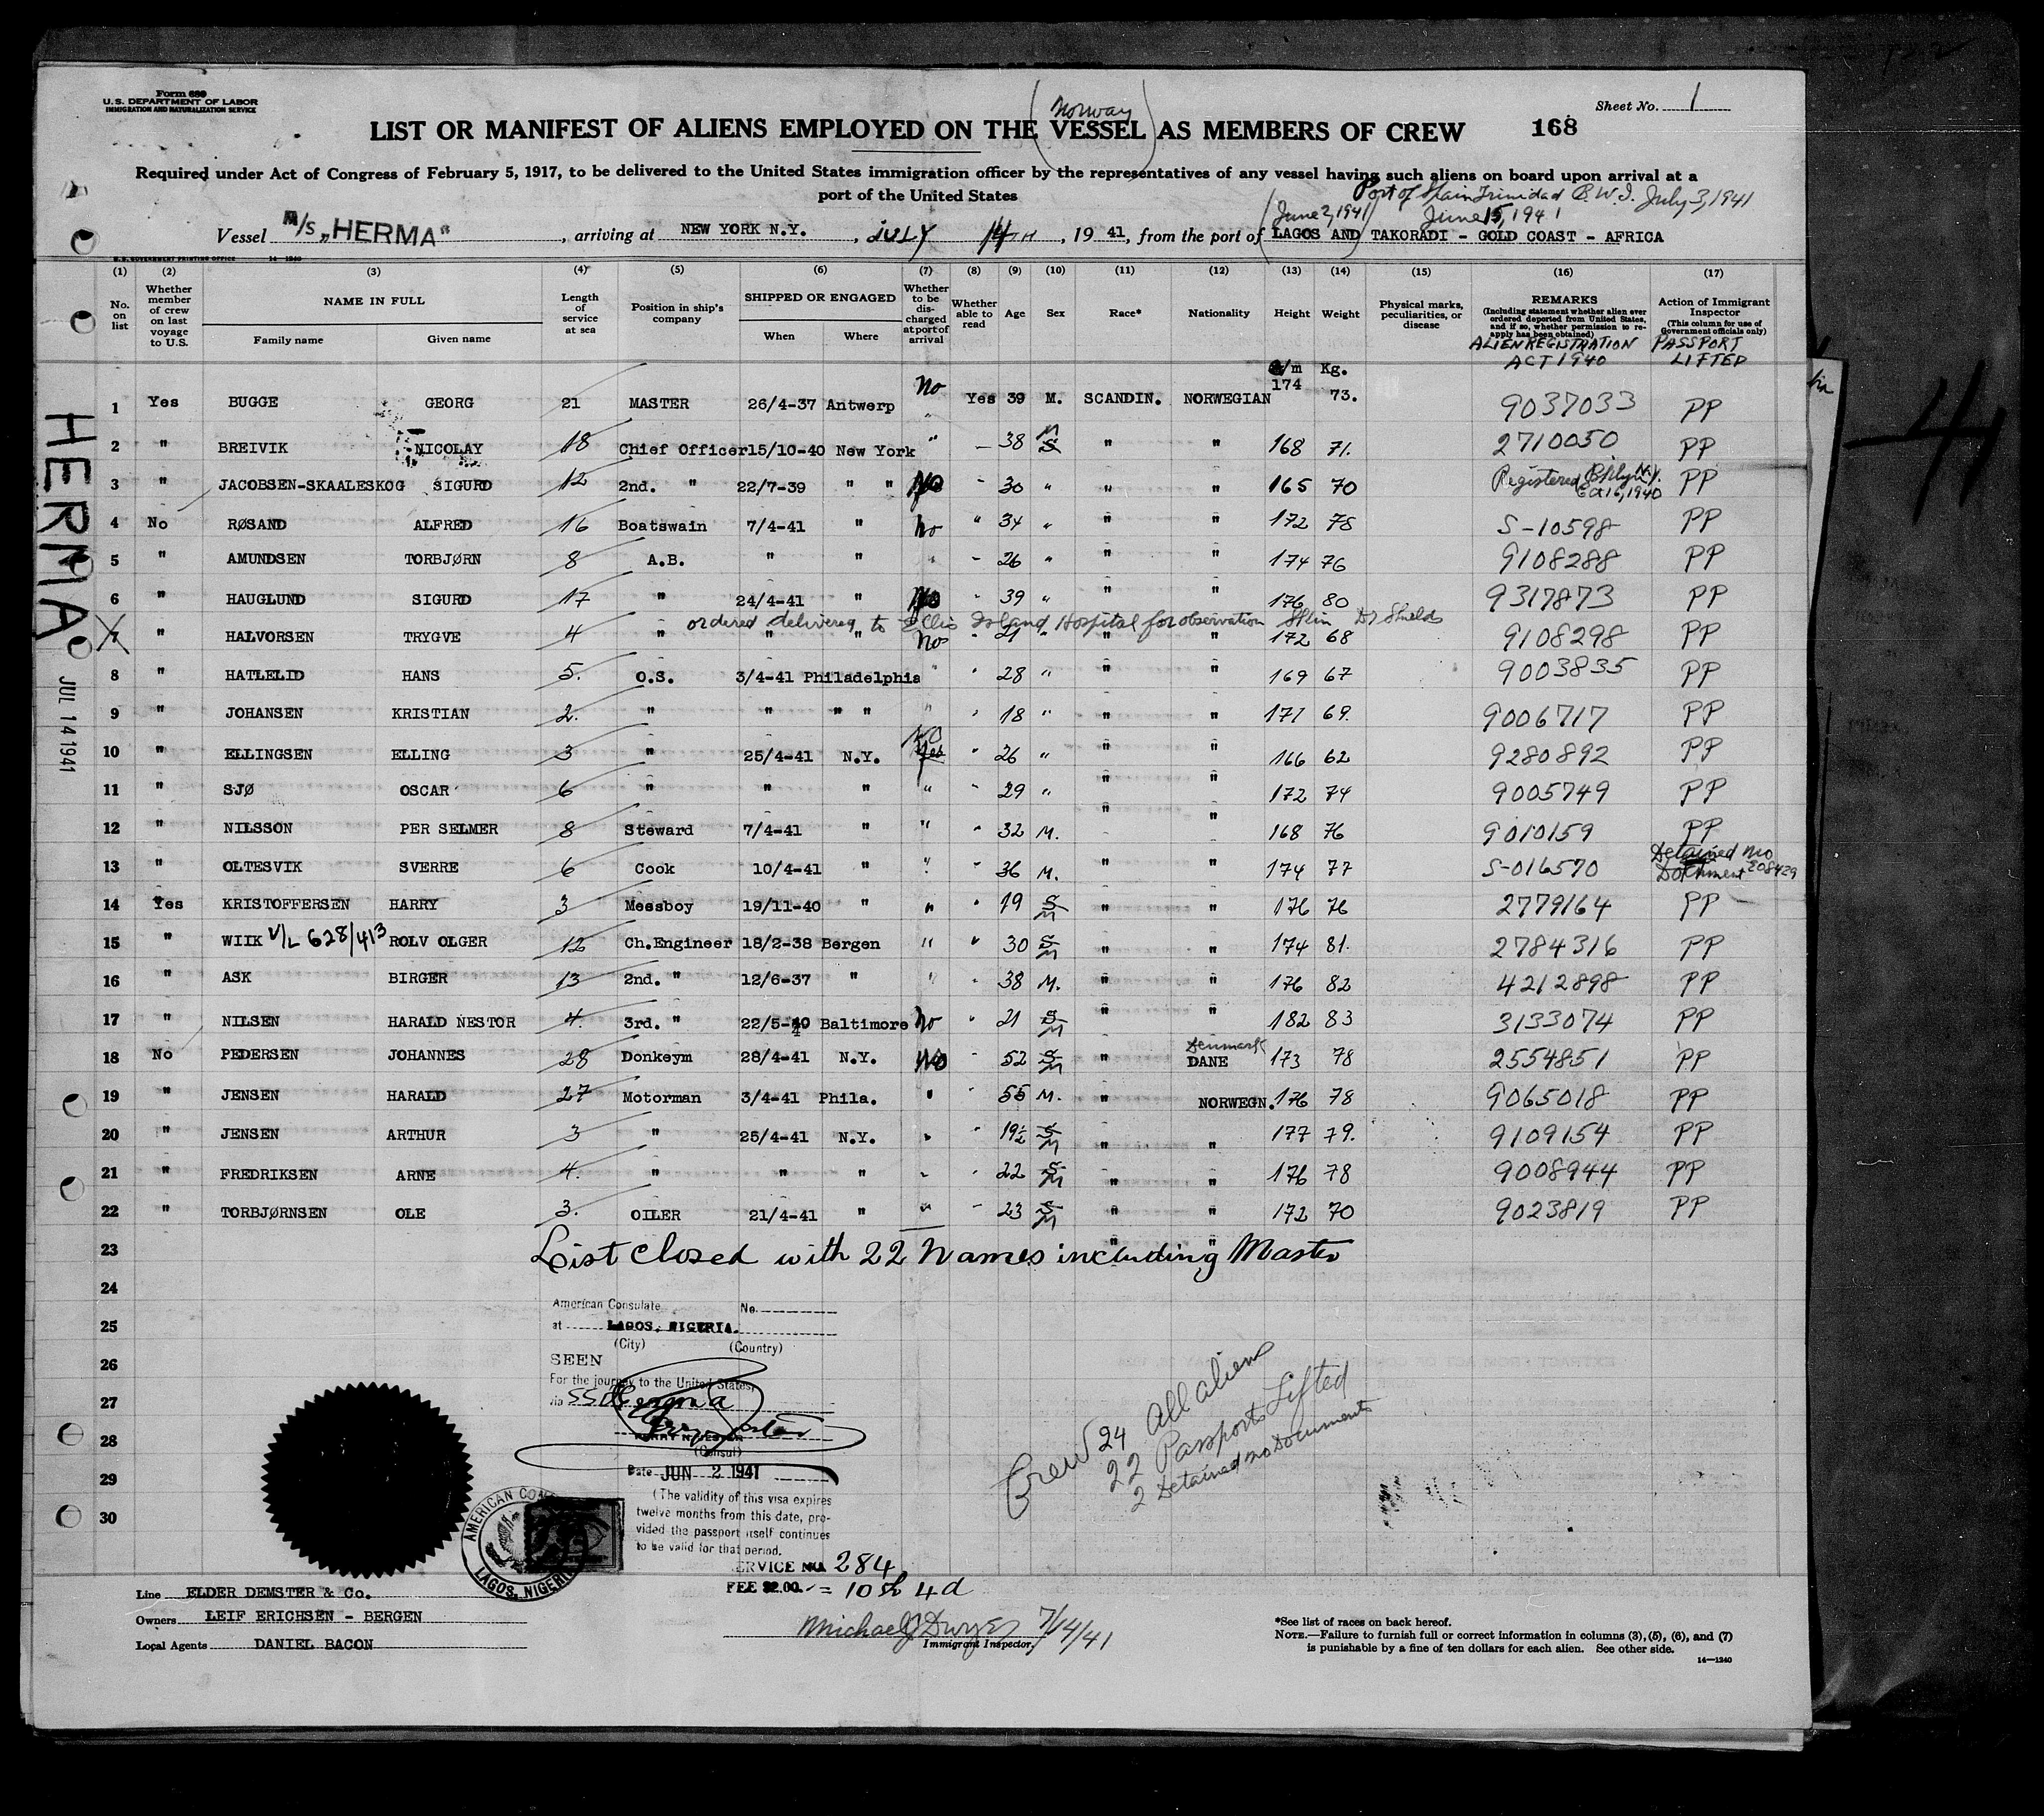 Form 689
U.S. DEPARTMENT OF LABOR
IMMIGRATION AND NATURALIZATION SERVICE
Sheet No. 1
(Norway)
LIST OR MANIFEST OF ALIENS EMPLOYED ON THE VESSEL AS MEMBERS OF CREW 168
Required under Act of Congress of February 5, 1917, to be delivered to the United States immigration officer by the representatives of any vessel having such aliens on board upon arrival at a
port of the United States
Port of Spain Trinidad B.W.I. July 3, 1941
(June 2, 1941) June 15, 1941
Vessel M/S „HERMA", arriving at NEW YORK N.Y., JULY 14TH, 19 41, from the port of LAGOS AND TAKORADI - GOLD COAST - AFRICA
(1) (2) (3) (4) (5) (6) (7) (8) (9) (10) (11) (12) (13) (14) (15) (16) (17)
No. on list
Whether member of crew on last voyage to U.S.
NAME IN FULL
Family name Given name
Length of service at sea
Position in ship's company
SHIPPED OR ENGAGED
When Where
Whether to be discharged at port of arrival
Whether able to read
Age
Sex
Race*
Nationality
Height
Weight
Physical marks, peculiarities, or disease
REMARKS
(Including statement whether alien ever ordered deported from United States, and if so, whether permission to reapply has been obtained)
ALIEN REGISTRATION ACT 1940
Action of Immigrant Inspector
(This column for use of Government officials only)
PASSPORT LIFTED
c/m Kg.
1 Yes BUGGE GEORG 21 MASTER 26/4-37 Antwerp No Yes 39 M. SCANDIN. NORWEGIAN 174 73. 9037033 PP
2 " BREIVIK NICOLAY 18 Chief Officer 15/10-40 New York " 38 S M " " 168 71. 2710050 PP
3 " JACOBSEN-SKAALESKOG SIGURD 12 2nd. " 22/7-39 " " No " 30 " " " 165 70 Registered Bklyn N.Y. Oct 15, 1940 PP
4 No RØSAND ALFRED 16 Boatswain 7/4-41 " No " 34 " " " 172 78 S-10598 PP
5 " AMUNDSEN TORBJØRN 8 A.B. " " " " 26 " " " 174 76 9108288 PP
6 " HAUGLUND SIGURD 17 " 24/4-41 " No " 39 " " " 176 80 9317873 PP
ordered delivered to Ellis Island Hospital for observation Dr Shields
7 " HALVORSEN TRYGVE 4 " " " No " 21 " " " 172 68 9108298 PP
8 " HATLELID HANS 5. O.S. 3/4-41 Philadelphia " " 28 " " " 169 67 9003835 PP
9 " JOHANSEN KRISTIAN 2. " " " " " " 18 " " " 171 69. 9006717 PP
10 " ELLINGSEN ELLING 3 " 25/4-41 N.Y. No Yes " 26 " " " 166 62 9280892 PP
11 " SJØ OSCAR 6 " " " " " 29 " " " 172 74 9005749 PP
12 " NILSSON PER SELMER 8 Steward 7/4-41 " " " 32 M. " " 168 76 9010159 PP
13 " OLTESVIK SVERRE 6 Cook 10/4-41 " " " 36 M. " " 174 77 S-016570 Detained no Document 208429
14 Yes KRISTOFFERSEN HARRY 3 Messboy 19/11-40 " " " 19 S M " " 176 76 2779164 PP
15 " WIIK V/L 628/413 ROLV OLGER 12 Ch.Engineer 18/2-38 Bergen " " 30 S M " " 174 81. 2784316 PP
16 " ASK BIRGER 13 2nd. " 12/6-37 " " " 38 M. " " 176 82 4212898 PP
17 " NILSEN HARALD NESTOR 4. 3rd. " 22/5-40 Baltimore No " 21 S M " " 182 83 3133074 PP
18 No PEDERSEN JOHANNES 28 Donkeym 28/4-41 N.Y. No " 52 S M " Denmark DANE 173 78 2554851 PP
19 " JENSEN HARALD 27 Motorman 3/4-41 Phila. " 55 M. " NORWEGN. 176 78 9065018 PP
20 " JENSEN ARTHUR 3 " 25/4-41 N.Y. " " 19½ S M " " 177 79. 9109154 PP
21 " FREDRIKSEN ARNE 4. " " " " " 22 S M " " 176 78 9008944 PP
22 " TORBJØRNSEN OLE 3. OILER 21/4-41 " " " 23 S M " " 172 70 9023819 PP
23 List closed with 22 names including Master
24
25
26
27
28
29
30
HERMA
JUL 14 1941
American Consulate No.
at LAGOS, NIGERIA.
(City) (Country)
SEEN
For the journey to the United States,
via SS Herma
(Consul)
Date JUN 2 1941
(The validity of this visa expires
twelve months from this date, pro-
vided the passport itself continues
to be valid for that period.
SERVICE NO. 284
FEE $2.00. = 10 sh 4d
AMERICAN CON
LAGOS, NIGERIA
Crew 24 All aliens
22 Passports Lifted
2 Detained no Documents
Line ELDER DEMSTER & Co.
Owners LEIF ERICHSEN - BERGEN
Local Agents DANIEL BACON
Michael J Dwyer 7/14/41
Immigrant Inspector.
*See list of races on back hereof.
NOTE.—Failure to furnish full or correct information in columns (3), (5), (6), and (7)
is punishable by a fine of ten dollars for each alien. See other side.
14—1240